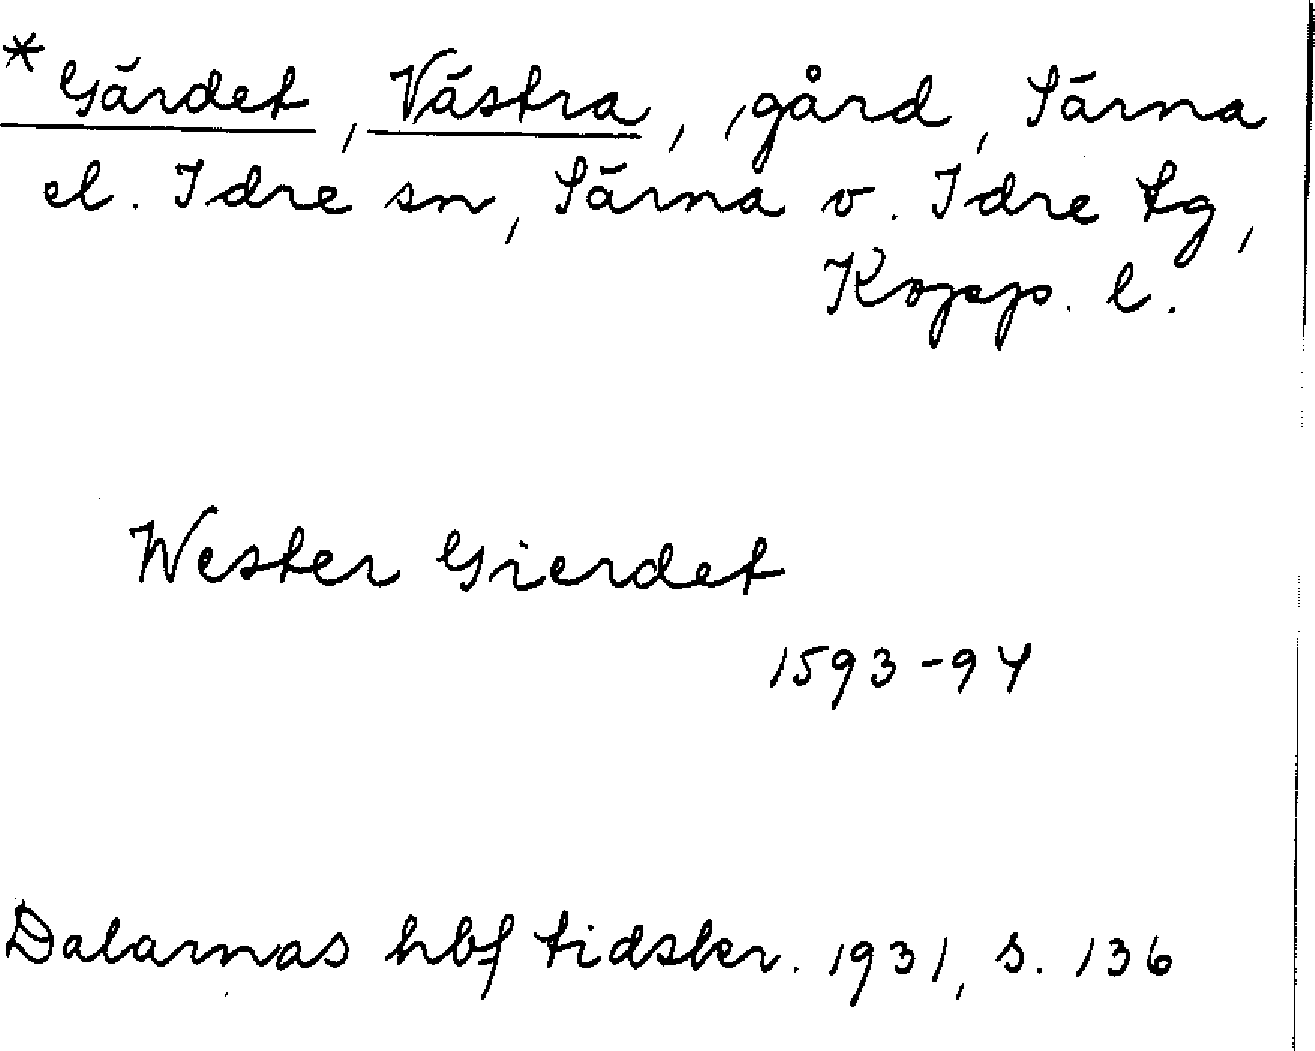 *Gärdet, Västra, gård, Särna
el. Idre sn, Särna o. Idre tg,
Kopp. l.
Wester Gierdet
1593-94
Dalarnas hbf tidskr. 1931, s. 136